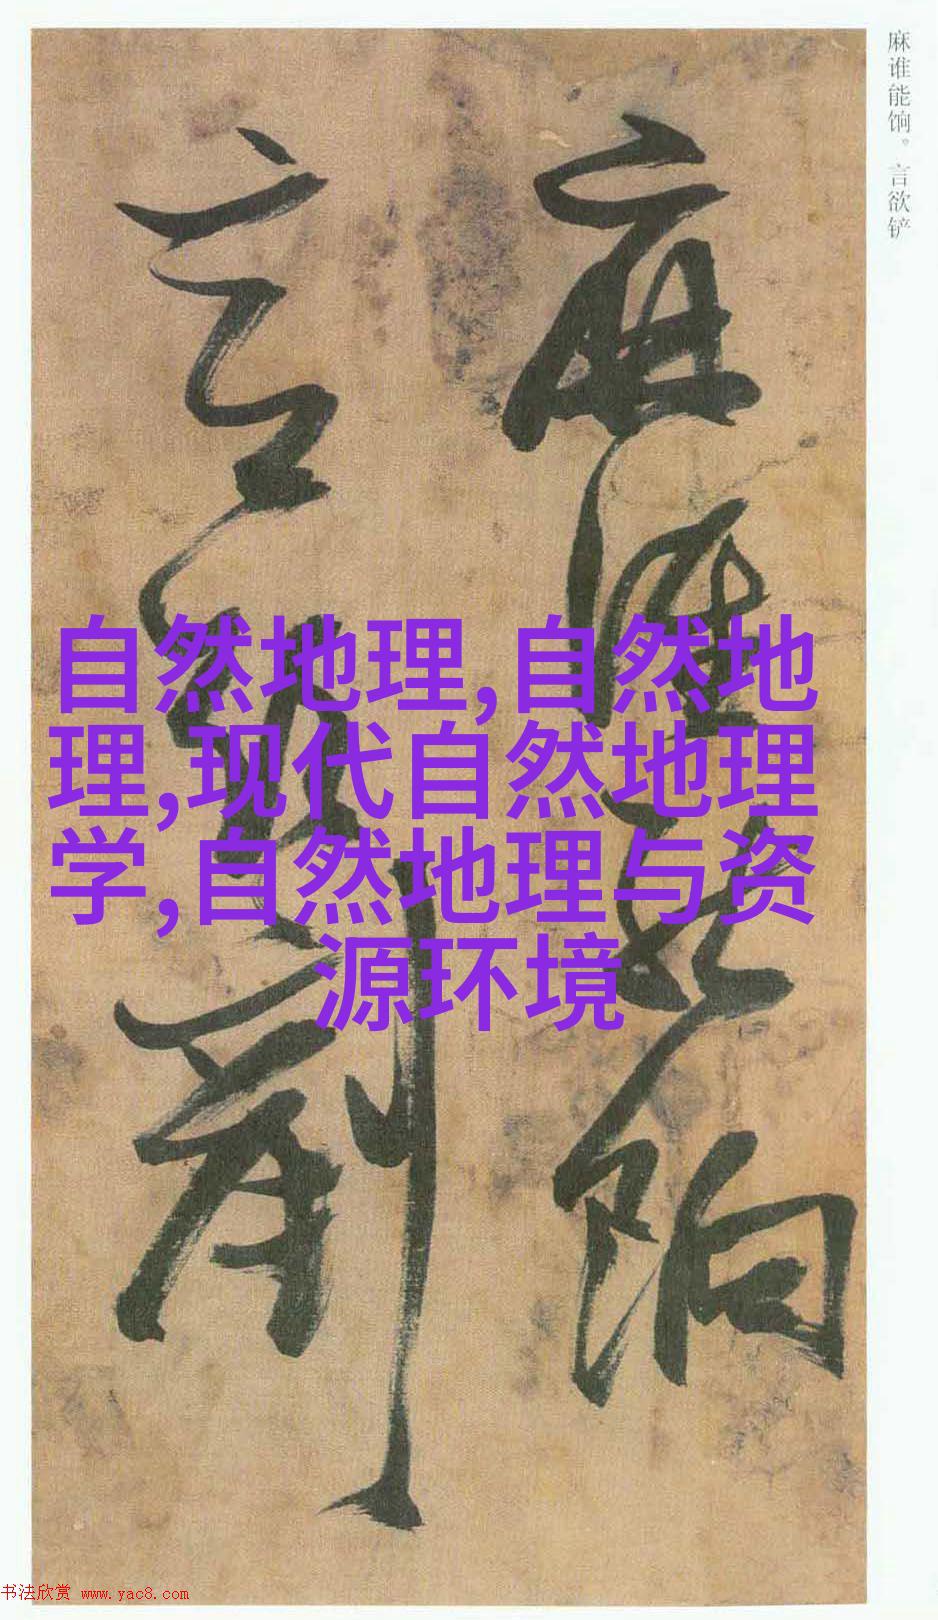 麻谁能饷。言欲铲
麻谁能饷
言欲剷
自然地理,自然地
理,现代自然地理
学,自然地理与资
源环境
书法欣赏 www.yac8.com